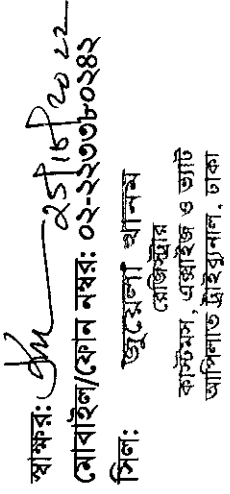 স্বাক্ষর: 25/10/2022
মোবাইল/ফোন নম্বর: ০২-২২৩৩৮০২৪২
সিল: জুয়েলা খানম
রেজিস্ট্রার
কাস্টমস, এক্সাইজ ও ভ্যাট
আপিলাত ট্রাইব্যুনাল, ঢাকা